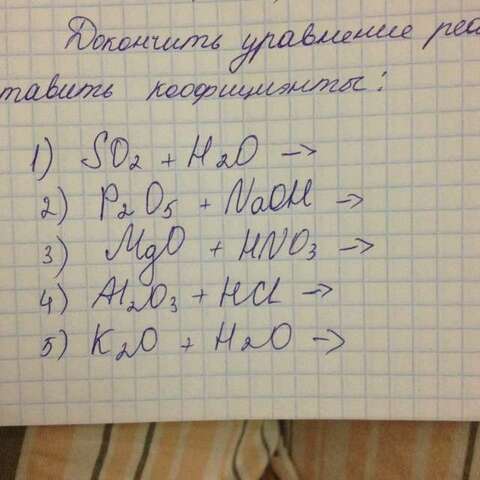 Докончить уравнение реа
тавить коофициэнты:
1) SO₂ + H₂O →
2) P₂O₅ + NaOH →
3) MgO + HNO₃ →
4) Al₂O₃ + HCl →
5) K₂O + H₂O →